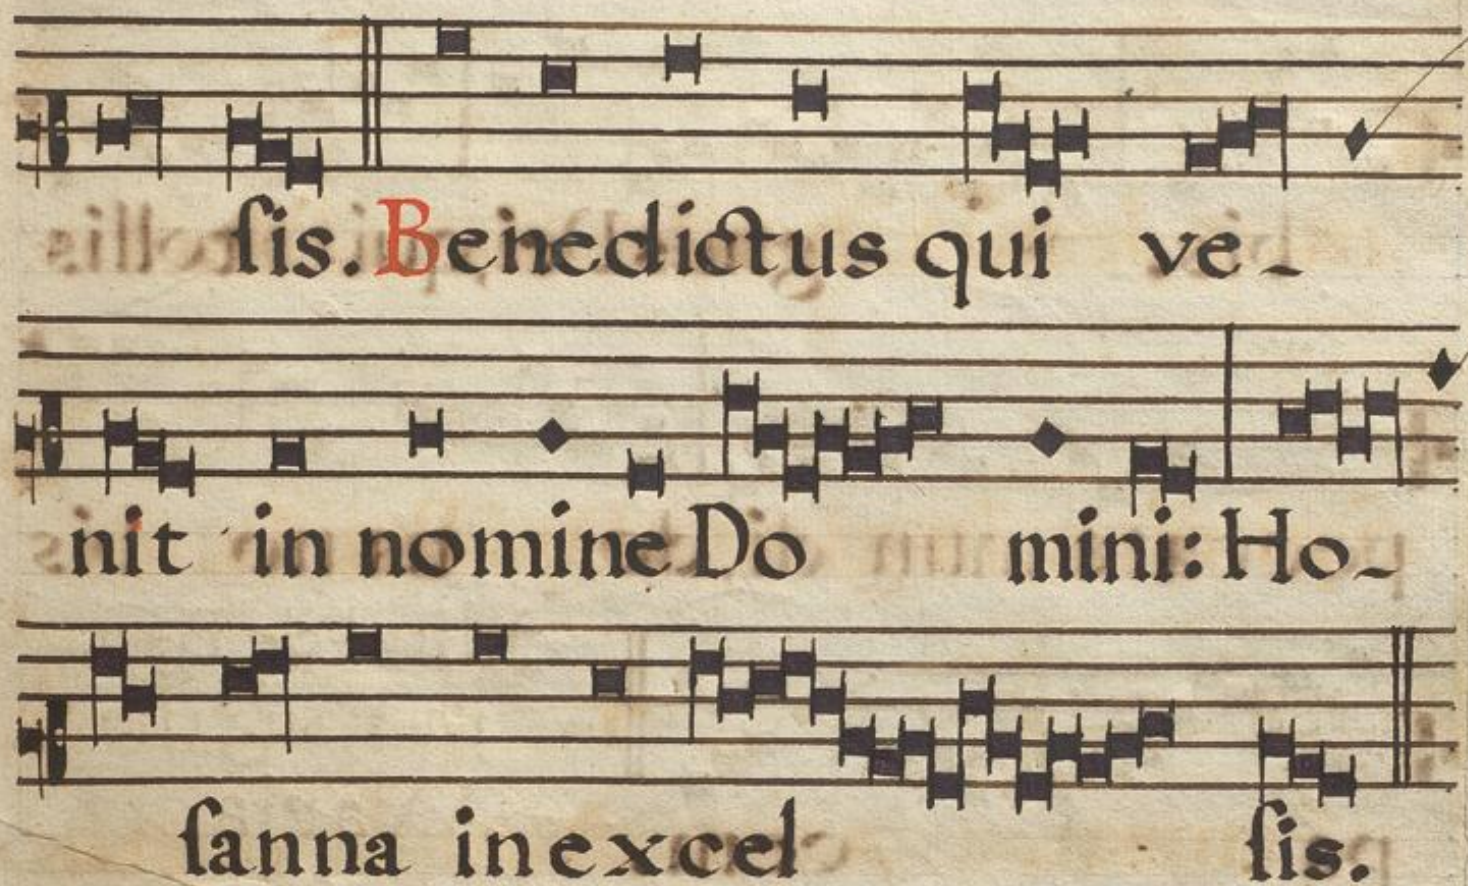 ſis. Benedictus qui ve-
nit in nomine Do mini: Ho-
ſanna in excel ſis.